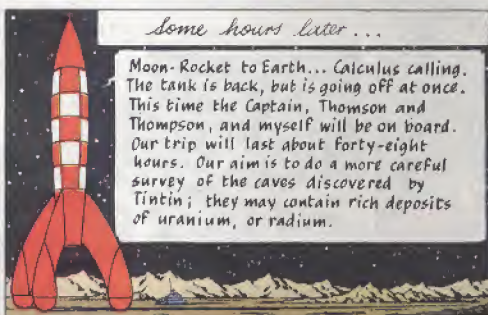 Some hours later ...
Moon-Rocket to Earth... Calculus calling.
The tank is back, but is going off at once.
This time the Captain, Thomson and
Thompson, and myself will be on board.
Our trip will last about forty-eight
hours. Our aim is to do a more careful
survey of the caves discovered by
Tintin; they may contain rich deposits
of uranium, or radium.